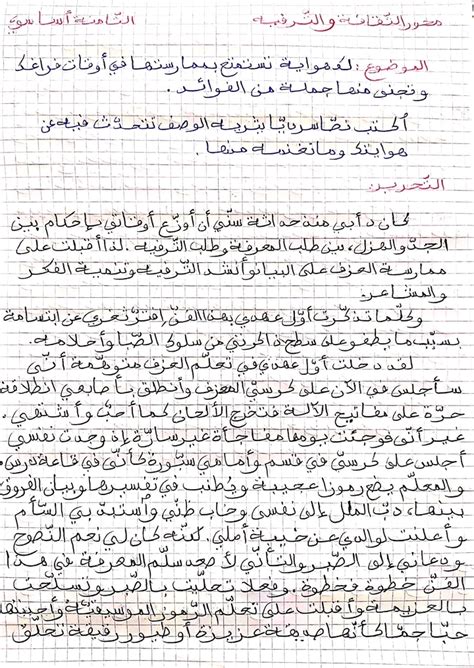 محور الثقافة والترفيه الثامنة أساسي
الموضوع: لك هواية تستمتع بممارستها في أوقات فراغك
وتجني منها جملة من الفوائد.
أكتب نصا سرديا يثريه الوصف تتحدث فيه عن
هوايتك وما تغنمه منها.
التحرير:
كان دأبي منذ حداثة سني أن أوزع أوقاتي بإحكام بين
الجد والهزل، بين طلب المعرفة وطلب الترفيه. لذا أقبلت على
ممارسة العزف على البيانو أنشد الترفيه وتنمية الفكر
والمشاعر.
وكلما تذكرت أول عهدي بهذا الفن افتر ثغري عن ابتسامة
بسبب ما يطفو على سطح ذاكرتي من سلوك الصبا وأحلامه.
لقد دخلت أول عهدي في تعلم العزف متوهمة أني
سأجلس في الآن على كرسي المعزف وأنطلق بأصابعي انطلاقة
حرة على مفاتيح الآلة فتخرج الألحان كما أحب وأشتهي.
غير أني فوجئت يومها مفاجأة غير سارة إذ وجدت نفسي
أجلس على كرسي في قسم وأمامي سبورة كأني في قاعة درس
والمعلم يضع رموزا عجيبة ويطنب في تفسيرها وبيان الفروق
بينها، دب الملل إلى نفسي وخاب ظني واستبد بي السأم
وأعلنت لوالدي عن خيبة أملي. لكنه كان لي نعم النصوح
ودعاني إلى الصبر والتأني لأصعد سلم المعرفة في هذا
الفن خطوة فخطوة. وفعلا تحليت بالصبر وتسلحت
بالعزيمة وأقبلت على تعلم الرموز الموسيقية وأحببتها
حبا جما كأنها صديقة عزيزة أو طيور رقيقة تحلق